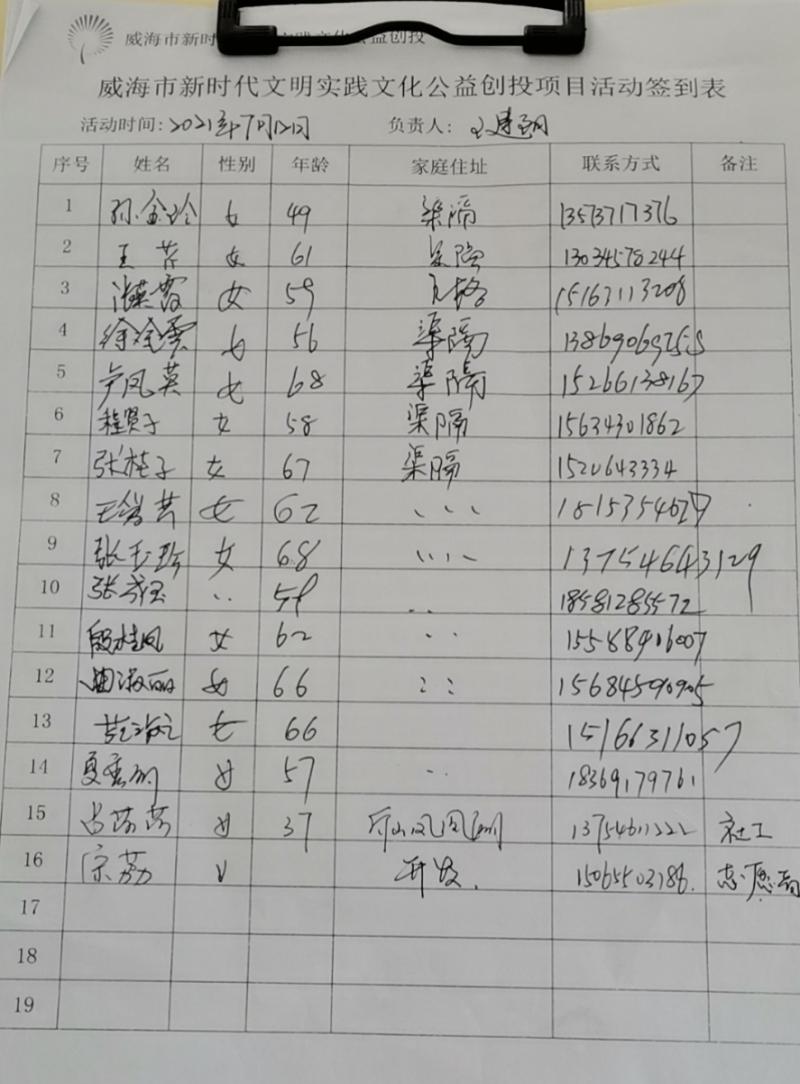 威海市新时
文化公益创投
威海市新时代文明实践文化公益创投项目活动签到表
活动时间: 2021年7月12日 负责人:
序号 姓名 性别 年龄 家庭住址 联系方式 备注
1 孙金玲 女 49 渠隔 13573717376
2 王芹 女 61 渠隔 13034578244
3 女 59 15163113208
4 徐金云 女 56 渠隔
5 卢凤英 女 68 渠隔 15266138167
6 程贤子 女 58 渠隔 15634301862
7 张桂子 女 67 渠隔 1520643334
8 女 62 、、、
9 张玉珍 女 68 、、、、 13754643129
10 张 、、 59 、、 18581285572
11 殷桂凤 女 62 、、
12 曲淑丽 女 66 、、
13 女 66 15166311057
14 夏 女 57 、、 18369179761
15 女 37 社工
16 宗荔 开发. 15065503186.
17
18
19